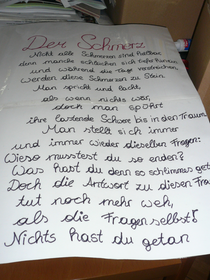 Der Schmerz
Nicht alle Schmerzen sind heilbar
denn manche schleichen sich tiefer ins Herz hinein
und während die Tage verstreichen
werden diese Schmerzen zu Stein
Man spricht und lacht
als wenn nichts wär,
doch man spürt
ihre lastende Schwer bis in den Traum.
Man stellt sich immer
und immer wieder dieselben Fragen:
Wieso musstest du so enden?
Was hast du denn so schlimmes get
Doch die Antwort zu diesen Fra
tut noch mehr weh,
als die Fragen selbst!
Nichts hast du getan